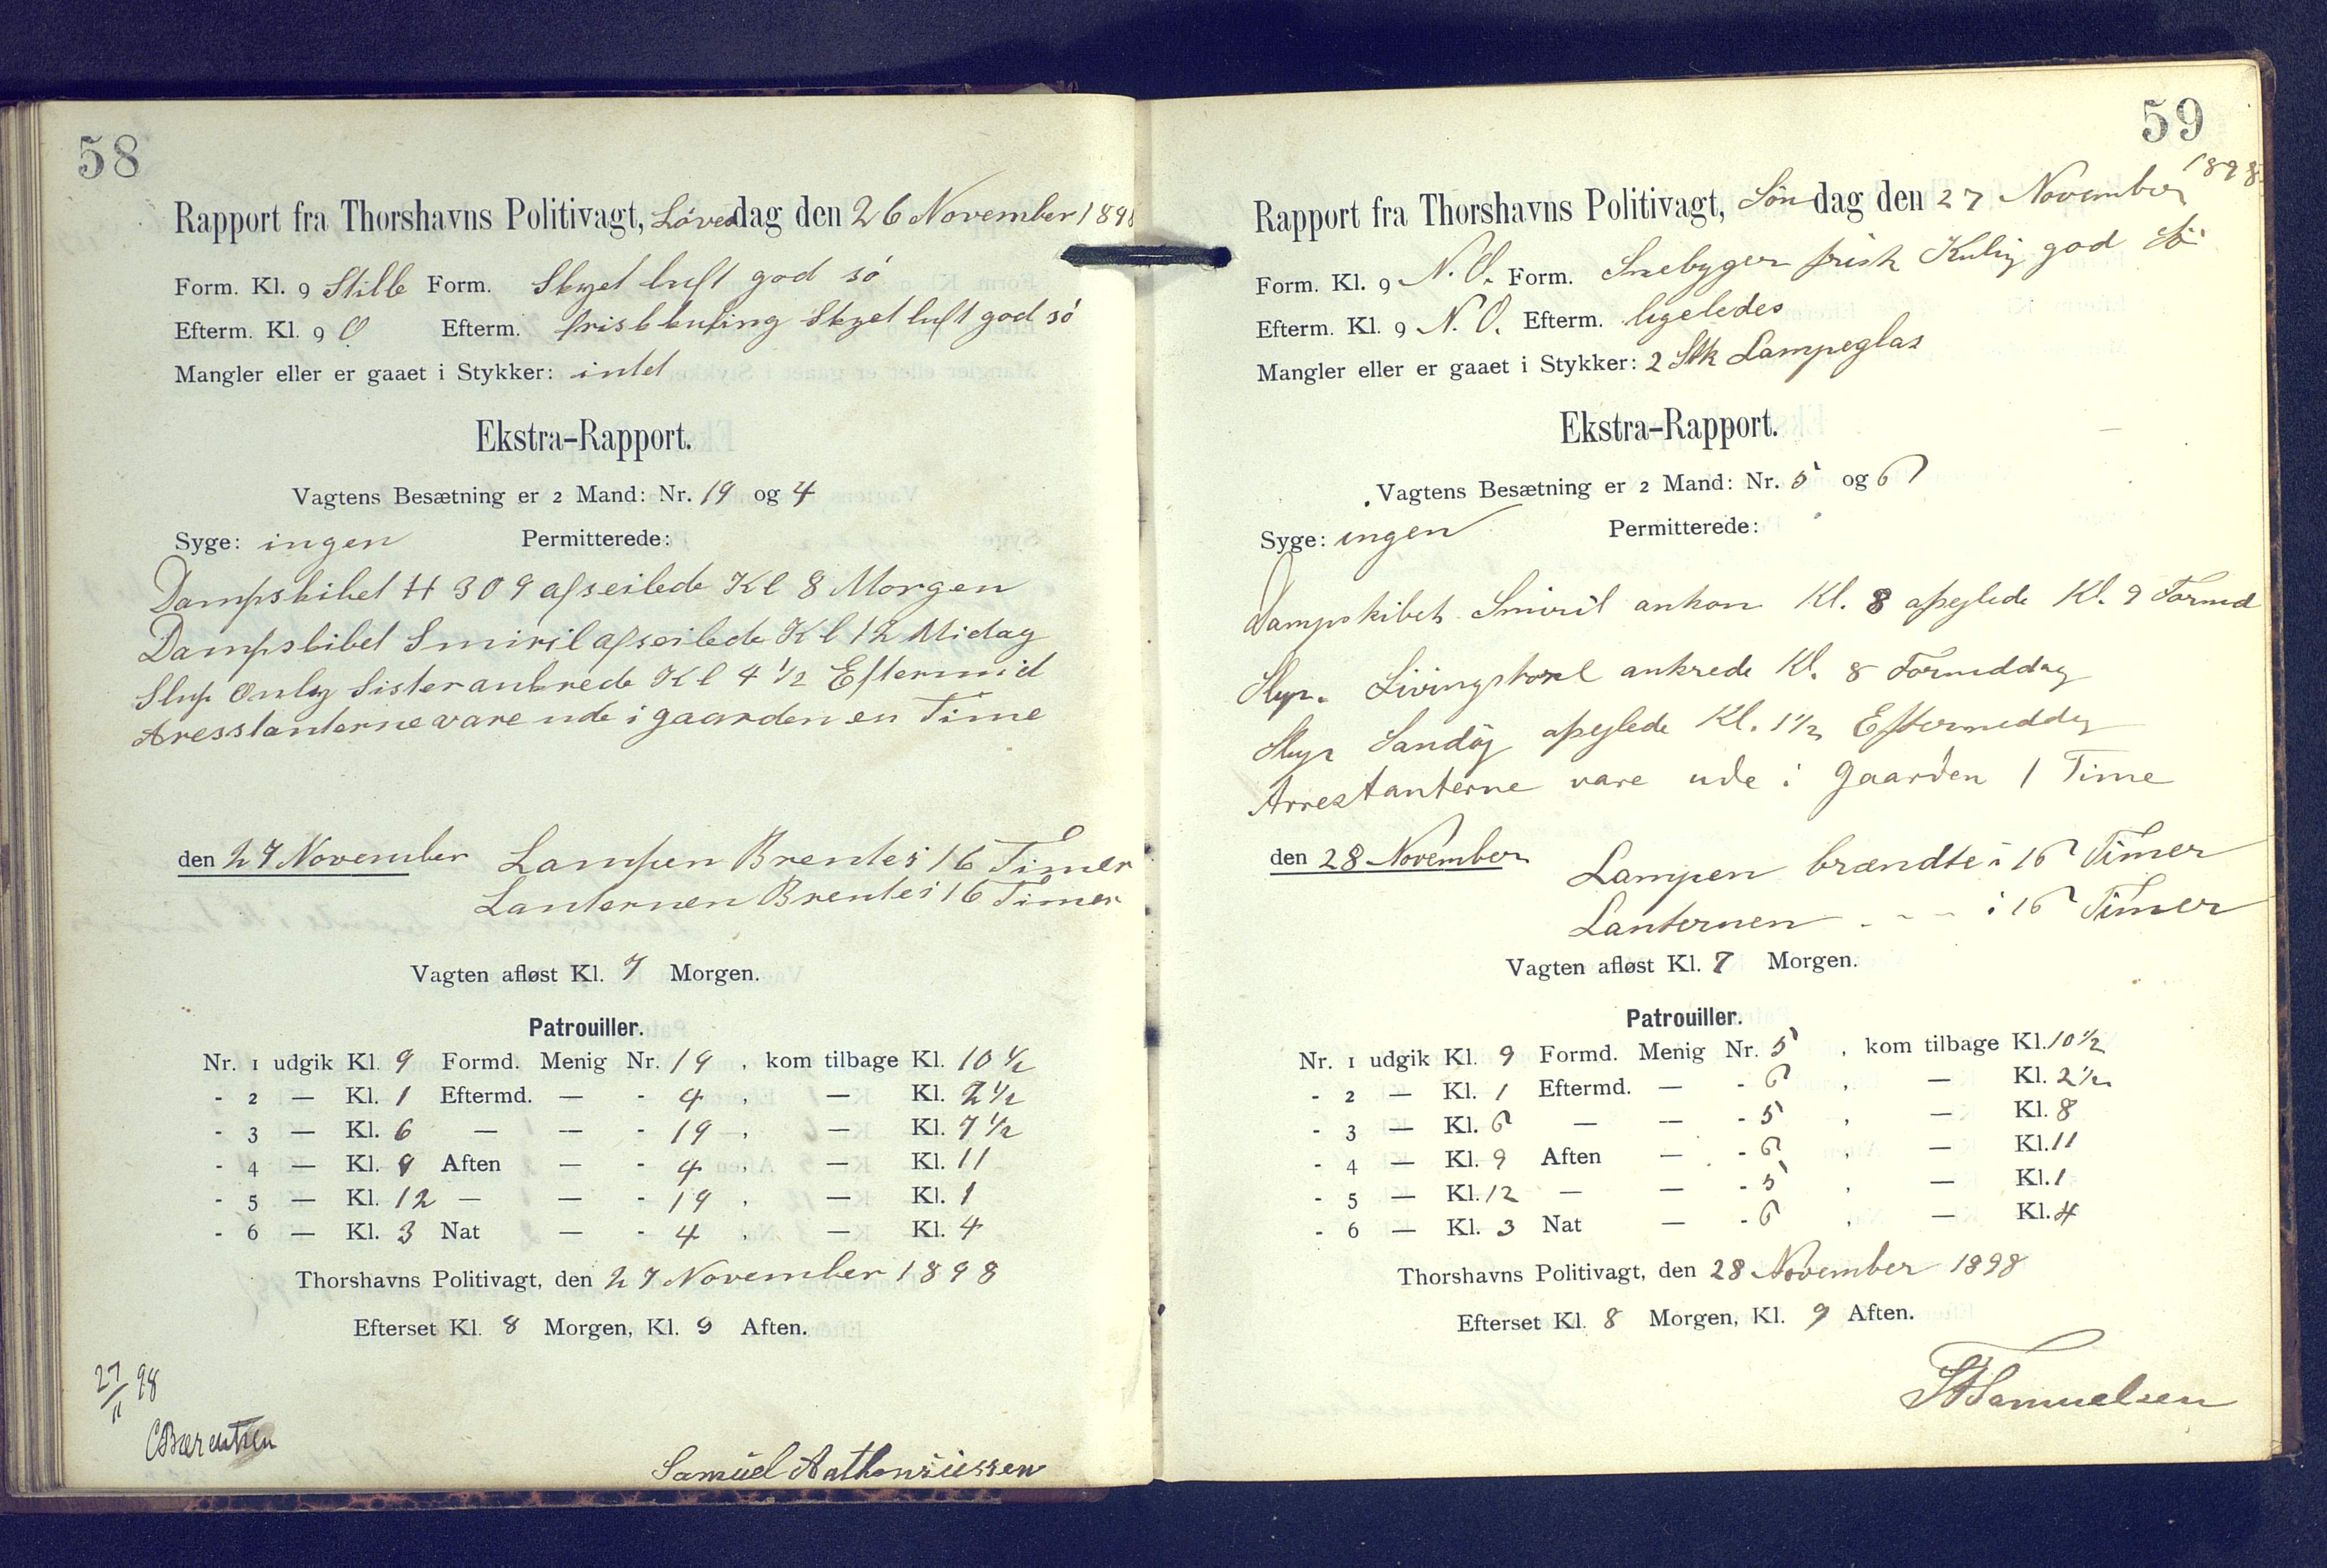 58
Rapport fra Thorshavns Politivagt, Löverdag den 26 November 1898
Form. Kl. 9 Stille Form. Skyet luft god sö
Efterm. Kl. 9 O Efterm. frisk kuling Skyet luft god sö
Mangler eller er gaaet i Stykker: intet
Ekstra-Rapport.
Vagtens Besætning er 2 Mand: Nr. 19 og 4
Syge: ingen Permitterede:
Dampskibet H 309 afseilede Kl 8 Morgen
Dampskibet Smiril afseilede Kl 12 Midag
Slup Only Sister ankrede Kl 4 1/2 Eftermid
Aresstanterne vare ude i gaarden en Time
den 27 November Lampen Brentes 16 Timer
Lanternen Brente i 16 Timer
Vagten afløst Kl. 7 Morgen.
Patrouiller.
Nr. 1 udgik Kl. 9 Formd. Menig Nr. 19 , kom tilbage Kl. 10 1/2
- 2 — Kl. 1 Eftermd. — - 4 , — Kl. 2 1/2
- 3 — Kl. 6 — — - 19 , — Kl. 7 1/2
- 4 — Kl. 9 Aften — - 4 , — Kl. 11
- 5 — Kl. 12 — — - 19 , — Kl. 1
- 6 — Kl. 3 Nat — - 4 , — Kl. 4
Thorshavns Politivagt, den 27 November 1898
Efterset Kl. 8 Morgen, Kl. 9 Aften.
27/11 98
CBærentsen
Samúel Anthoniússen
59
Rapport fra Thorshavns Politivagt, Søndag den 27 November 1898
Form. Kl. 9 N. O. Form. Snebyger frisk Kuling god Sö
Efterm. Kl. 9 N. O. Efterm. ligeledes
Mangler eller er gaaet i Stykker: 2 Stk Lampeglas
Ekstra-Rapport.
Vagtens Besætning er 2 Mand: Nr. 5 og 6
Syge: ingen Permitterede:
Dampskibet Smiril ankom Kl. 8 afsejlede Kl. 9 Formd
Slup. Livingstone ankrede Kl. 8 Formiddag
Slup Sandöy afsejlede Kl. 1 1/2 Eftermiddag
Arrestanterne vare ude i Gaarden 1 Time
den 28 November Lampen brændte i 16 Timer
Lanternen - - - i 16 Timer
Vagten afløst Kl. 7 Morgen.
Patrouiller.
Nr. 1 udgik Kl. 9 Formd. Menig Nr. 5 , kom tilbage Kl. 10 1/2
- 2 — Kl. 1 Eftermd. — - 6 , — Kl. 2 1/2
- 3 — Kl. 6 — — - 5 , — Kl. 8
- 4 — Kl. 9 Aften — - 6 , — Kl. 11
- 5 — Kl. 12 — — - 5 , — Kl. 1
- 6 — Kl. 3 Nat — - 6 , — Kl. 4
Thorshavns Politivagt, den 28 November 1898
Efterset Kl. 8 Morgen, Kl. 9 Aften.
Samuelsen